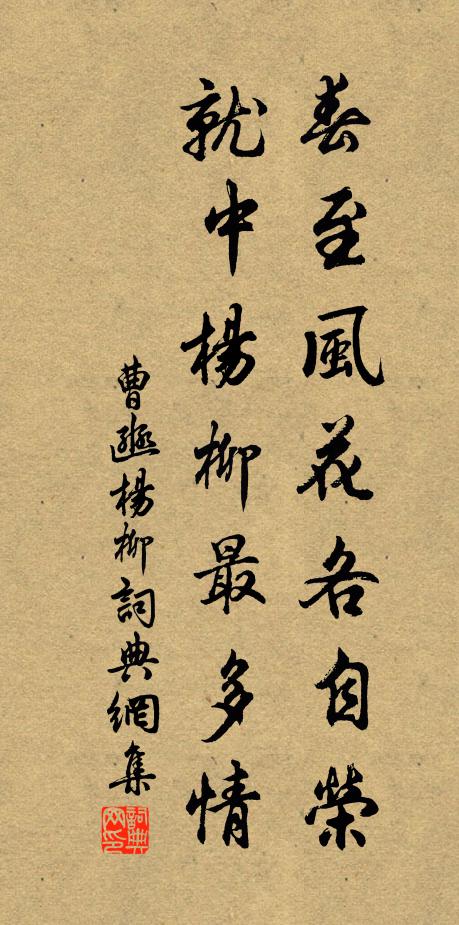 春至風花各自榮
就中楊柳最多情
曹邍楊柳詞典網集
詞典网印